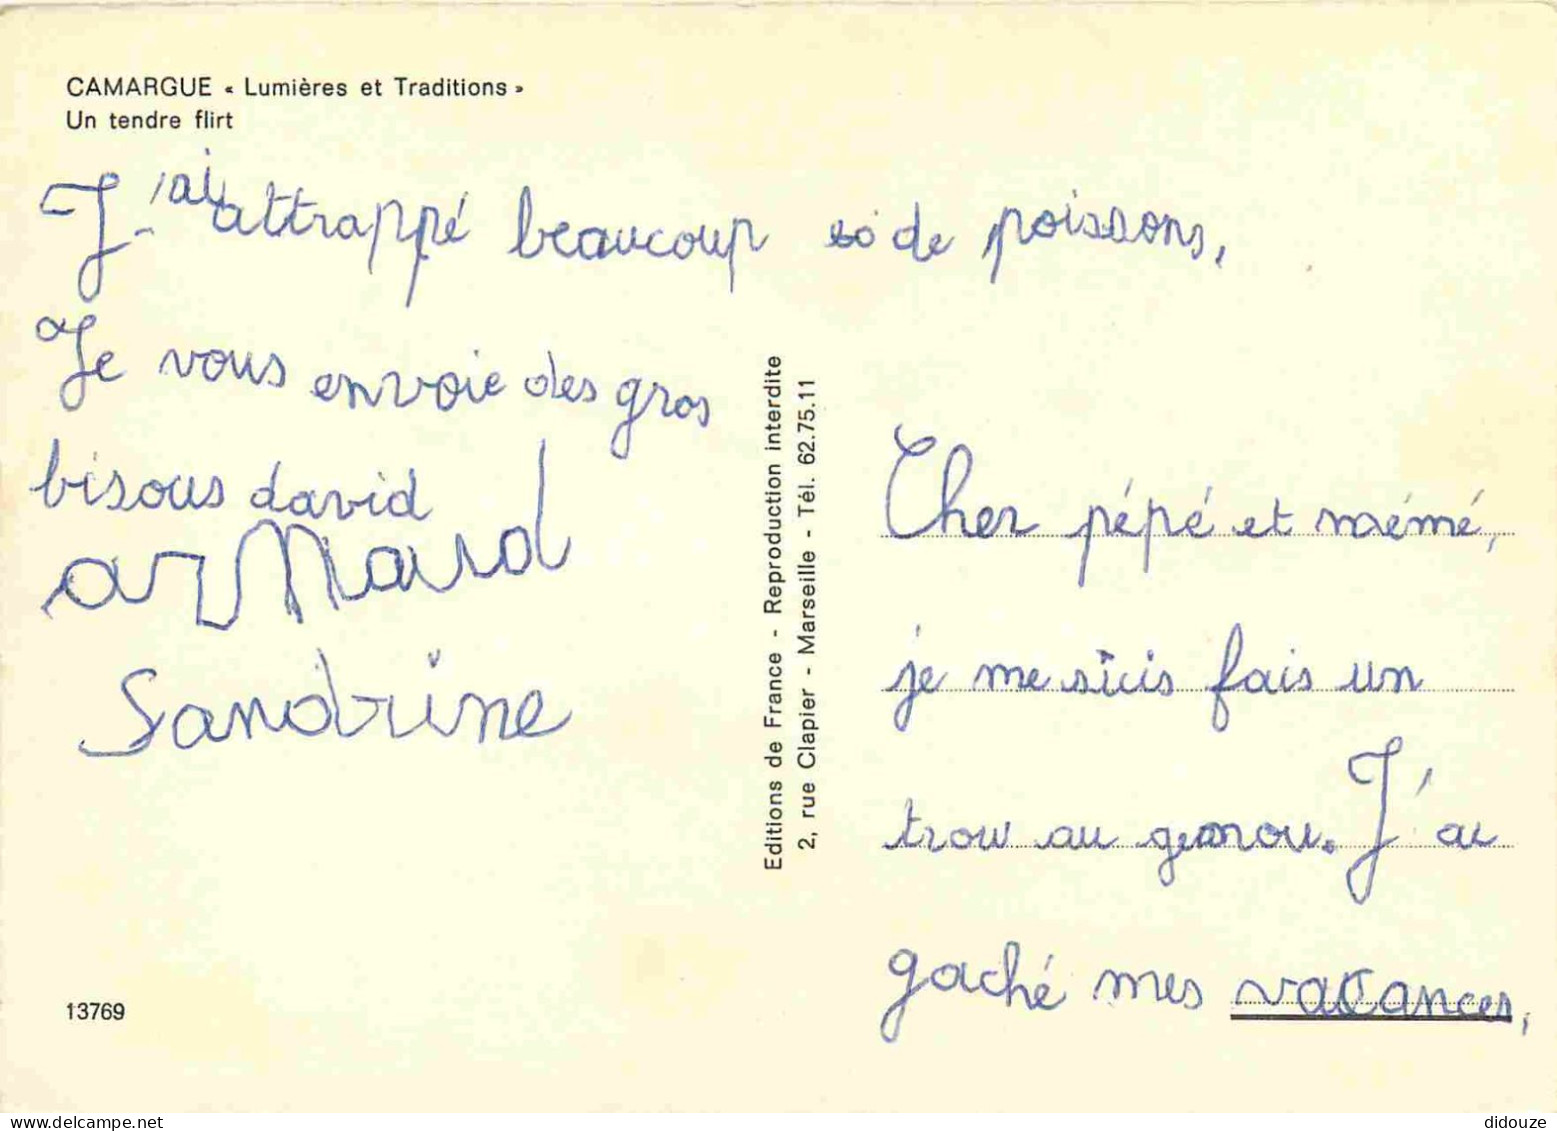 CAMARGUE « Lumières et Traditions »
Un tendre flirt
J'ai attrappé beaucoup de poissons,
Je vous envoie des gros
bisous david
arMand
Sandrine
13769
Editions de France - Reproduction interdite
2, rue Clapier - Marseille - Tél. 62.75.11
Cher pépé et mémé,
je me suis fais un
trou au genou. J'ai
gaché mes vacances,
didouze